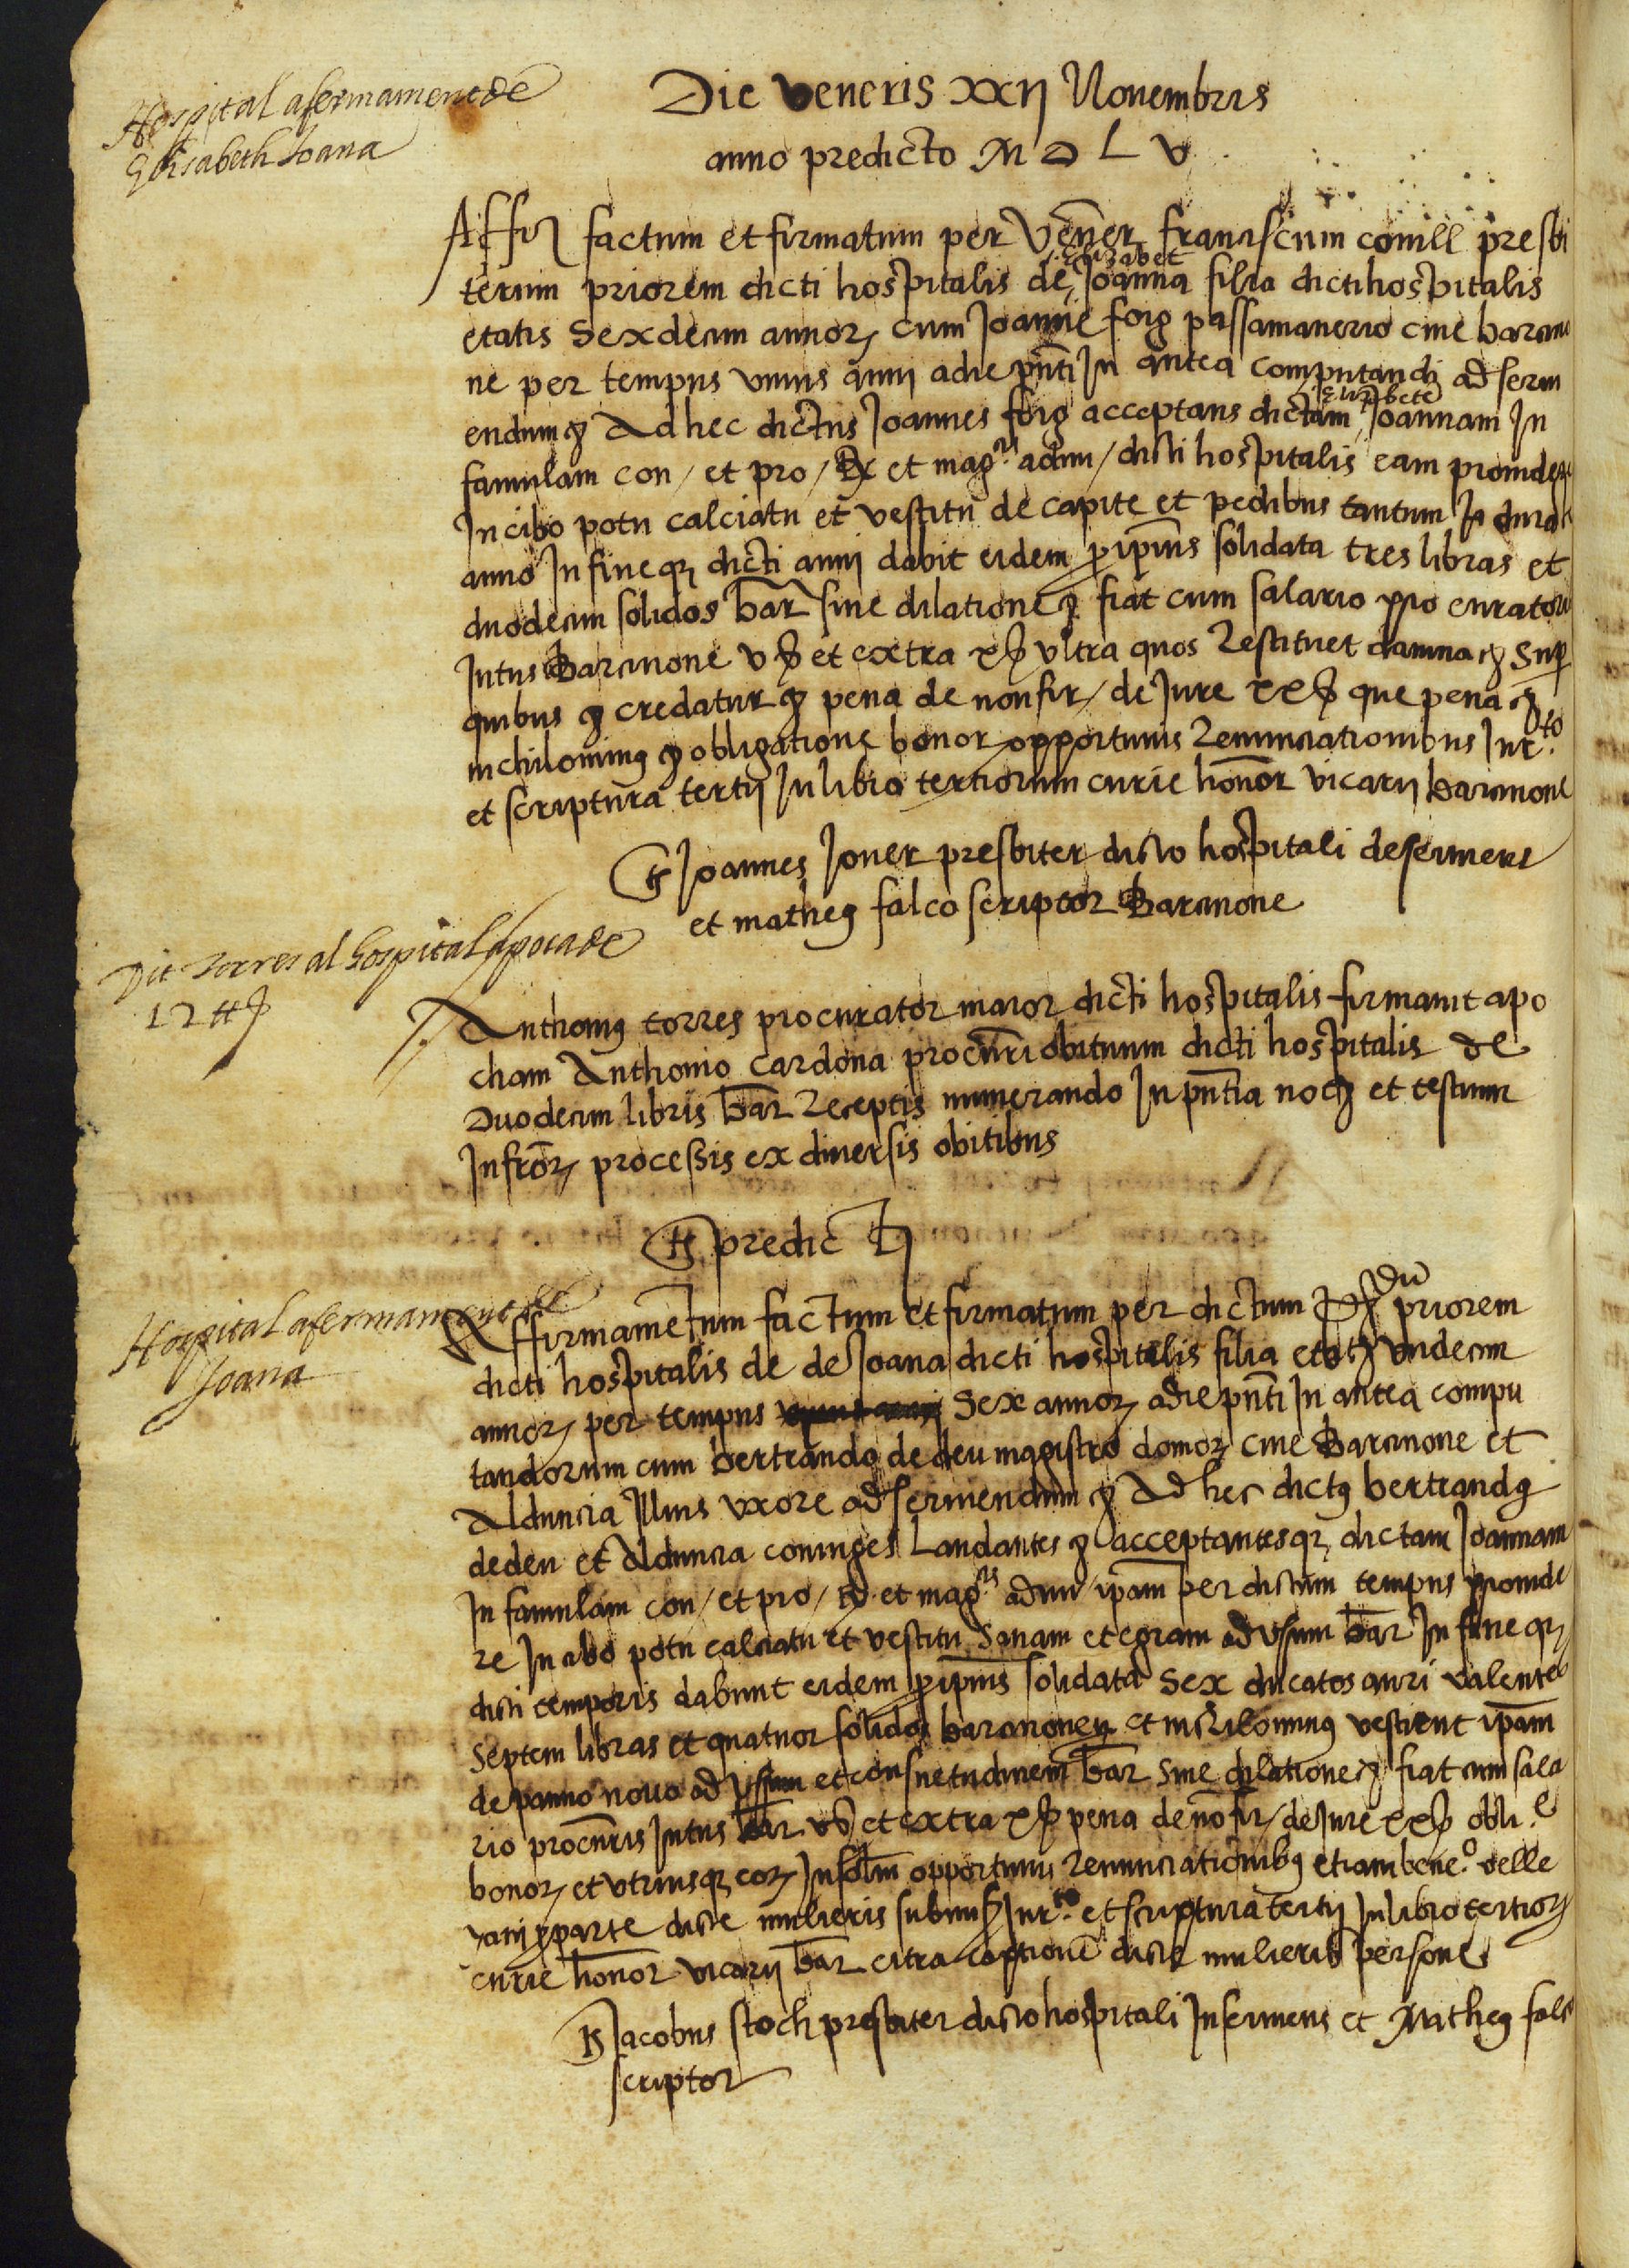 Hospital afermament de
Elisabeth Joana
Die veneris xxij Novembris
anno predicto M D L V
Affir factum et firmatum per Vener franciscum conill presbi
terum priorem dicti hospitalis de Joanna filia dicti hospitalis
elizabet
etatis Sexdecim annor cum Joanne foig passamanerio cive barcino
ne per tempus unius anni a die pnti In antea computandi ad servi
endum &c Ad hec dictus Joannes foig acceptans dictam Joannam In
elizabete
famulam con / et pro / et mag adm / dicti hospitalis eam providere
In cibo potu calciatu et vestitu de capite et pedibus tantum
anno In fine q dicti anni dabit eidem p ipius solidata tres libras et
duodecim solidos bar sine dilatione &c fiat cum salario pro curatoris
Intus Barcinone v ß et extra x ß ultra quos Restituet damna &c Sup
quibus &c credatur &c pena de non fir / de Jure xx ß que pena &c
nichilominus &c obligatione bonor opportunis Renunciationibus Jur.to
et scriptura tertij In libro tertiorum curie honor vicarij barcinone
ts Joannes Joner presbiter dicto hospitali deserviens
et matheus falco scriptor Barcinone
Dit torres al hospital apoca de
12 ₶
Anthonius torres procurator maior dicti hospitalis firmavit apo
cham Anthonio Cardona procuri obituum dicti hospitalis de
Duodecim libris bar Receptis numerando In pntia not et testium
Infror processis ex diversis obitibus
ts predic ti
Hospital afermament de
Joana
Affirmamentum factum et firmatum per dictum priorem
dicti hospitalis de de Joana dicti hospitalis filia etatis undecim
annor per tempus Sex annor a die pnti In antea compu
tandorum cum bertrando de deu magistro domor cive Barcinone et
Alduncia Illius uxore ad serviendum &c Ad hec dictus bertrandus
de deu et Alduncia coniuges Laudantes &c acceptantesq dictam Joannam
In famulam con / et pro / et mag adm / ipam per dictum tempus provide
re In cibo potu calciatu et vestitu Sanam et egram ad usum bar In fine q
dicti temporis dabunt eidem p ipius solidata Sex ducatos auri valentes
Septem libras et quatuor solidos barcinonen et nichilominus vestient ipam
de panno novo ad usum et consuetudinem bar Sine dilatione &c fiat cum sala
rio procuris Intus bar v ß et extra x ß pena de no fir / de Jure xx ß obli.e
bonor et utriusq eor Insolm opportunis Renunciationibus etiam bene.o velle
yani p parte dicte mulieris Jur.to et scriptura tertij In libro tertior
curie honor vicarij bar citra captione dicte mulieris persone
ts Jacobus stoch presbiter dicto hospitali Inserviens et Matheus falco
scriptor